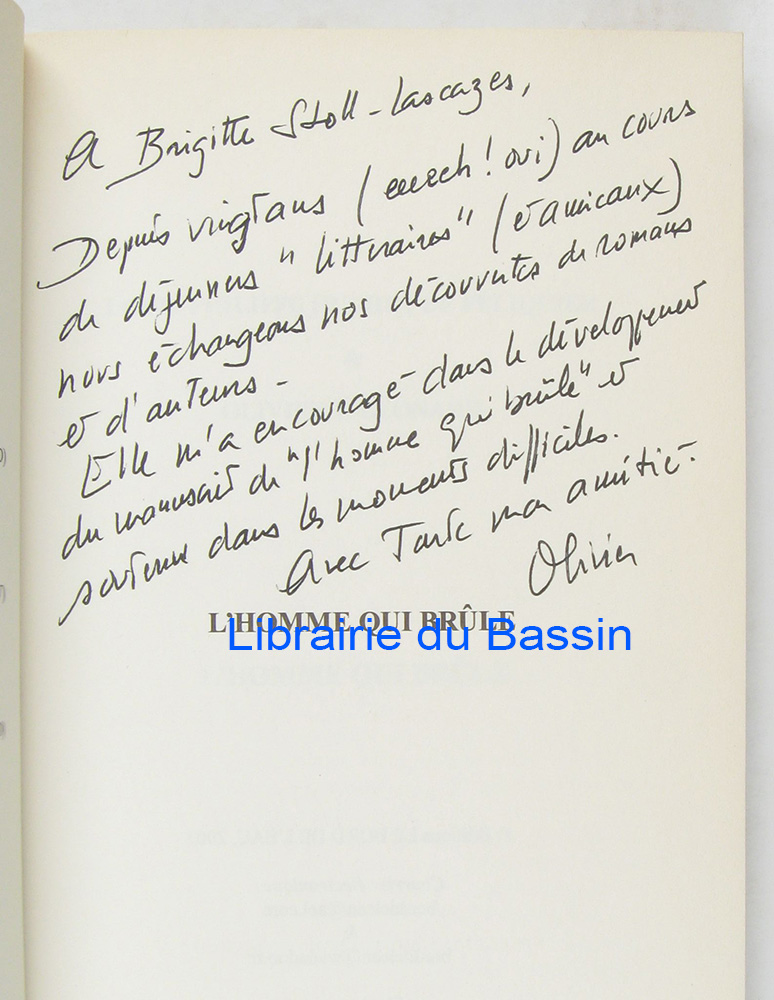 A Brigitte Stoll-Lascazes,
Depuis vingt ans (eeeech! oui) au cours
de déjeuners "littéraires" (et amicaux)
nous échangeons nos découvertes de romans
et d'auteurs -
Elle m'a encouragé dans le développement
du manuscrit de "l'homme qui brûle" et
soutenu dans les moments difficiles.
Avec Toute mon amitié.
Olivier
L'HOMME QUI BRÛLE
Librairie du Bassin